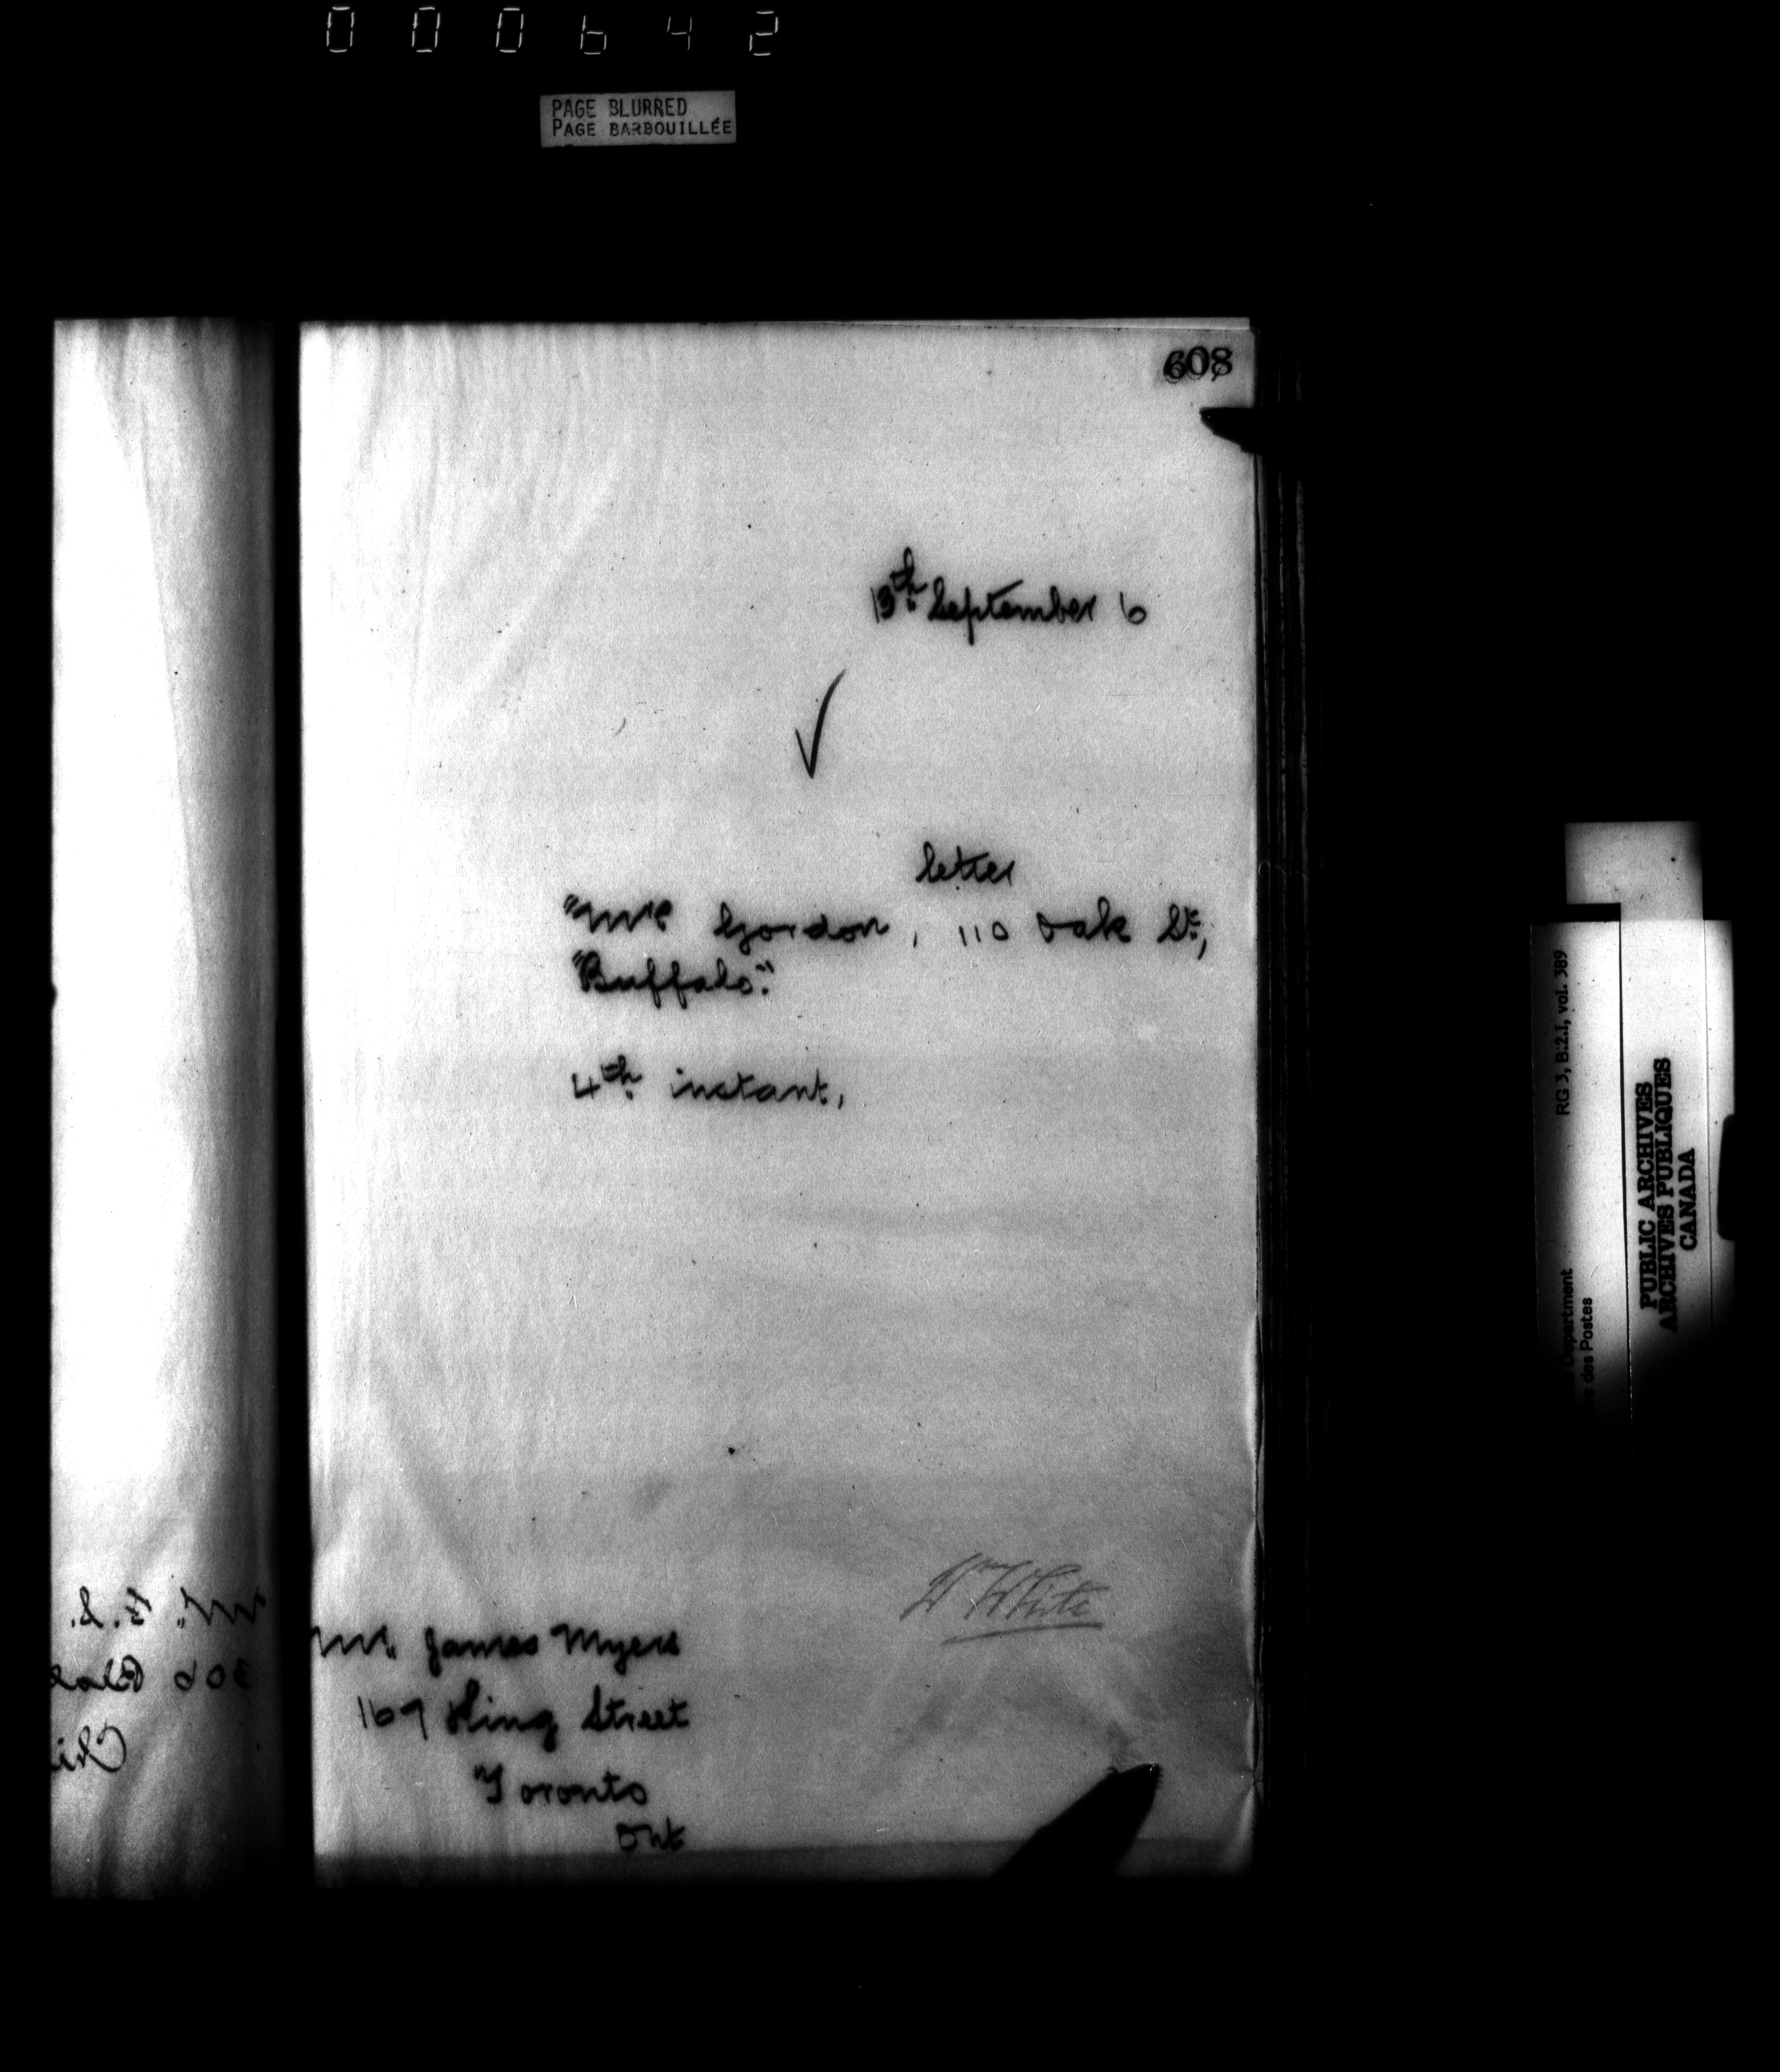 000642
PAGE BLURRED
PAGE BARBOUILLÉE
608
13th September 6
letter
"Mr Gordon, 110 Oak St.,
"Buffalo".
4th instant,
W White
Mr. James Myers
169 King Street
Toronto
Ont
Mr. F. S.
306
Chi
RG 3, B.2.1, vol. 389
Department
des Postes
PUBLIC ARCHIVES
ARCHIVES PUBLIQUES
CANADA